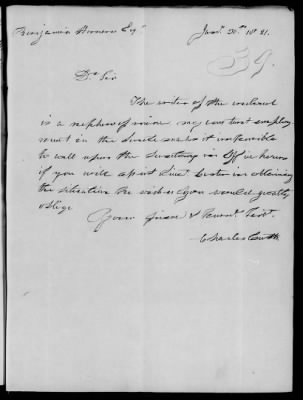 Benjamin Homans Esqr. Jany. 20th 1821.
Dr Sir
The writer of the enclosed
is a nephew of mine, my constant employ
ment in the Senate makes it impossible
to call upon the Secretary in Office hours
if you will assist Lieut. in obtaining
the situation he wishes you would greatly
oblige
Your friend & Servt.
Charles Cutts